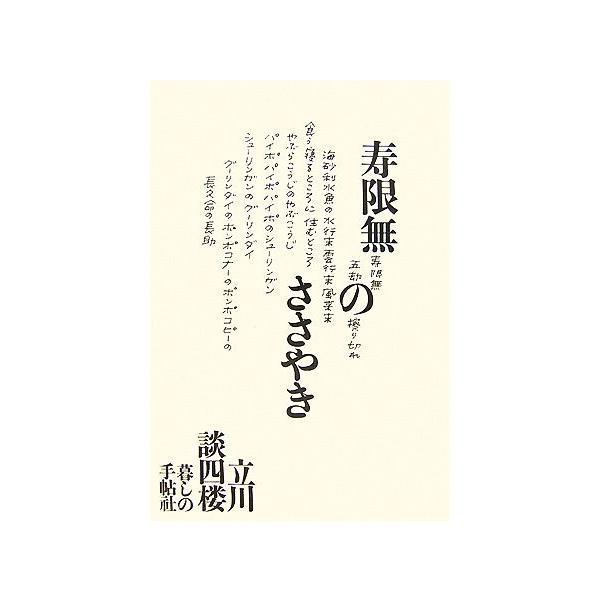 寿限無の
ささやき
寿限無
五劫の擦り切れ
海砂利水魚の水行末雲行末風来末
食う寝るところに住むところ
やぶらこうじのやぶこうじ
パイポパイポパイポのシューリンガン
シューリンガンのグーリンダイ
グーリンダイのポンポコナーのポンポコピーの
長久命の長助
立川
談四楼
暮しの
手帖社